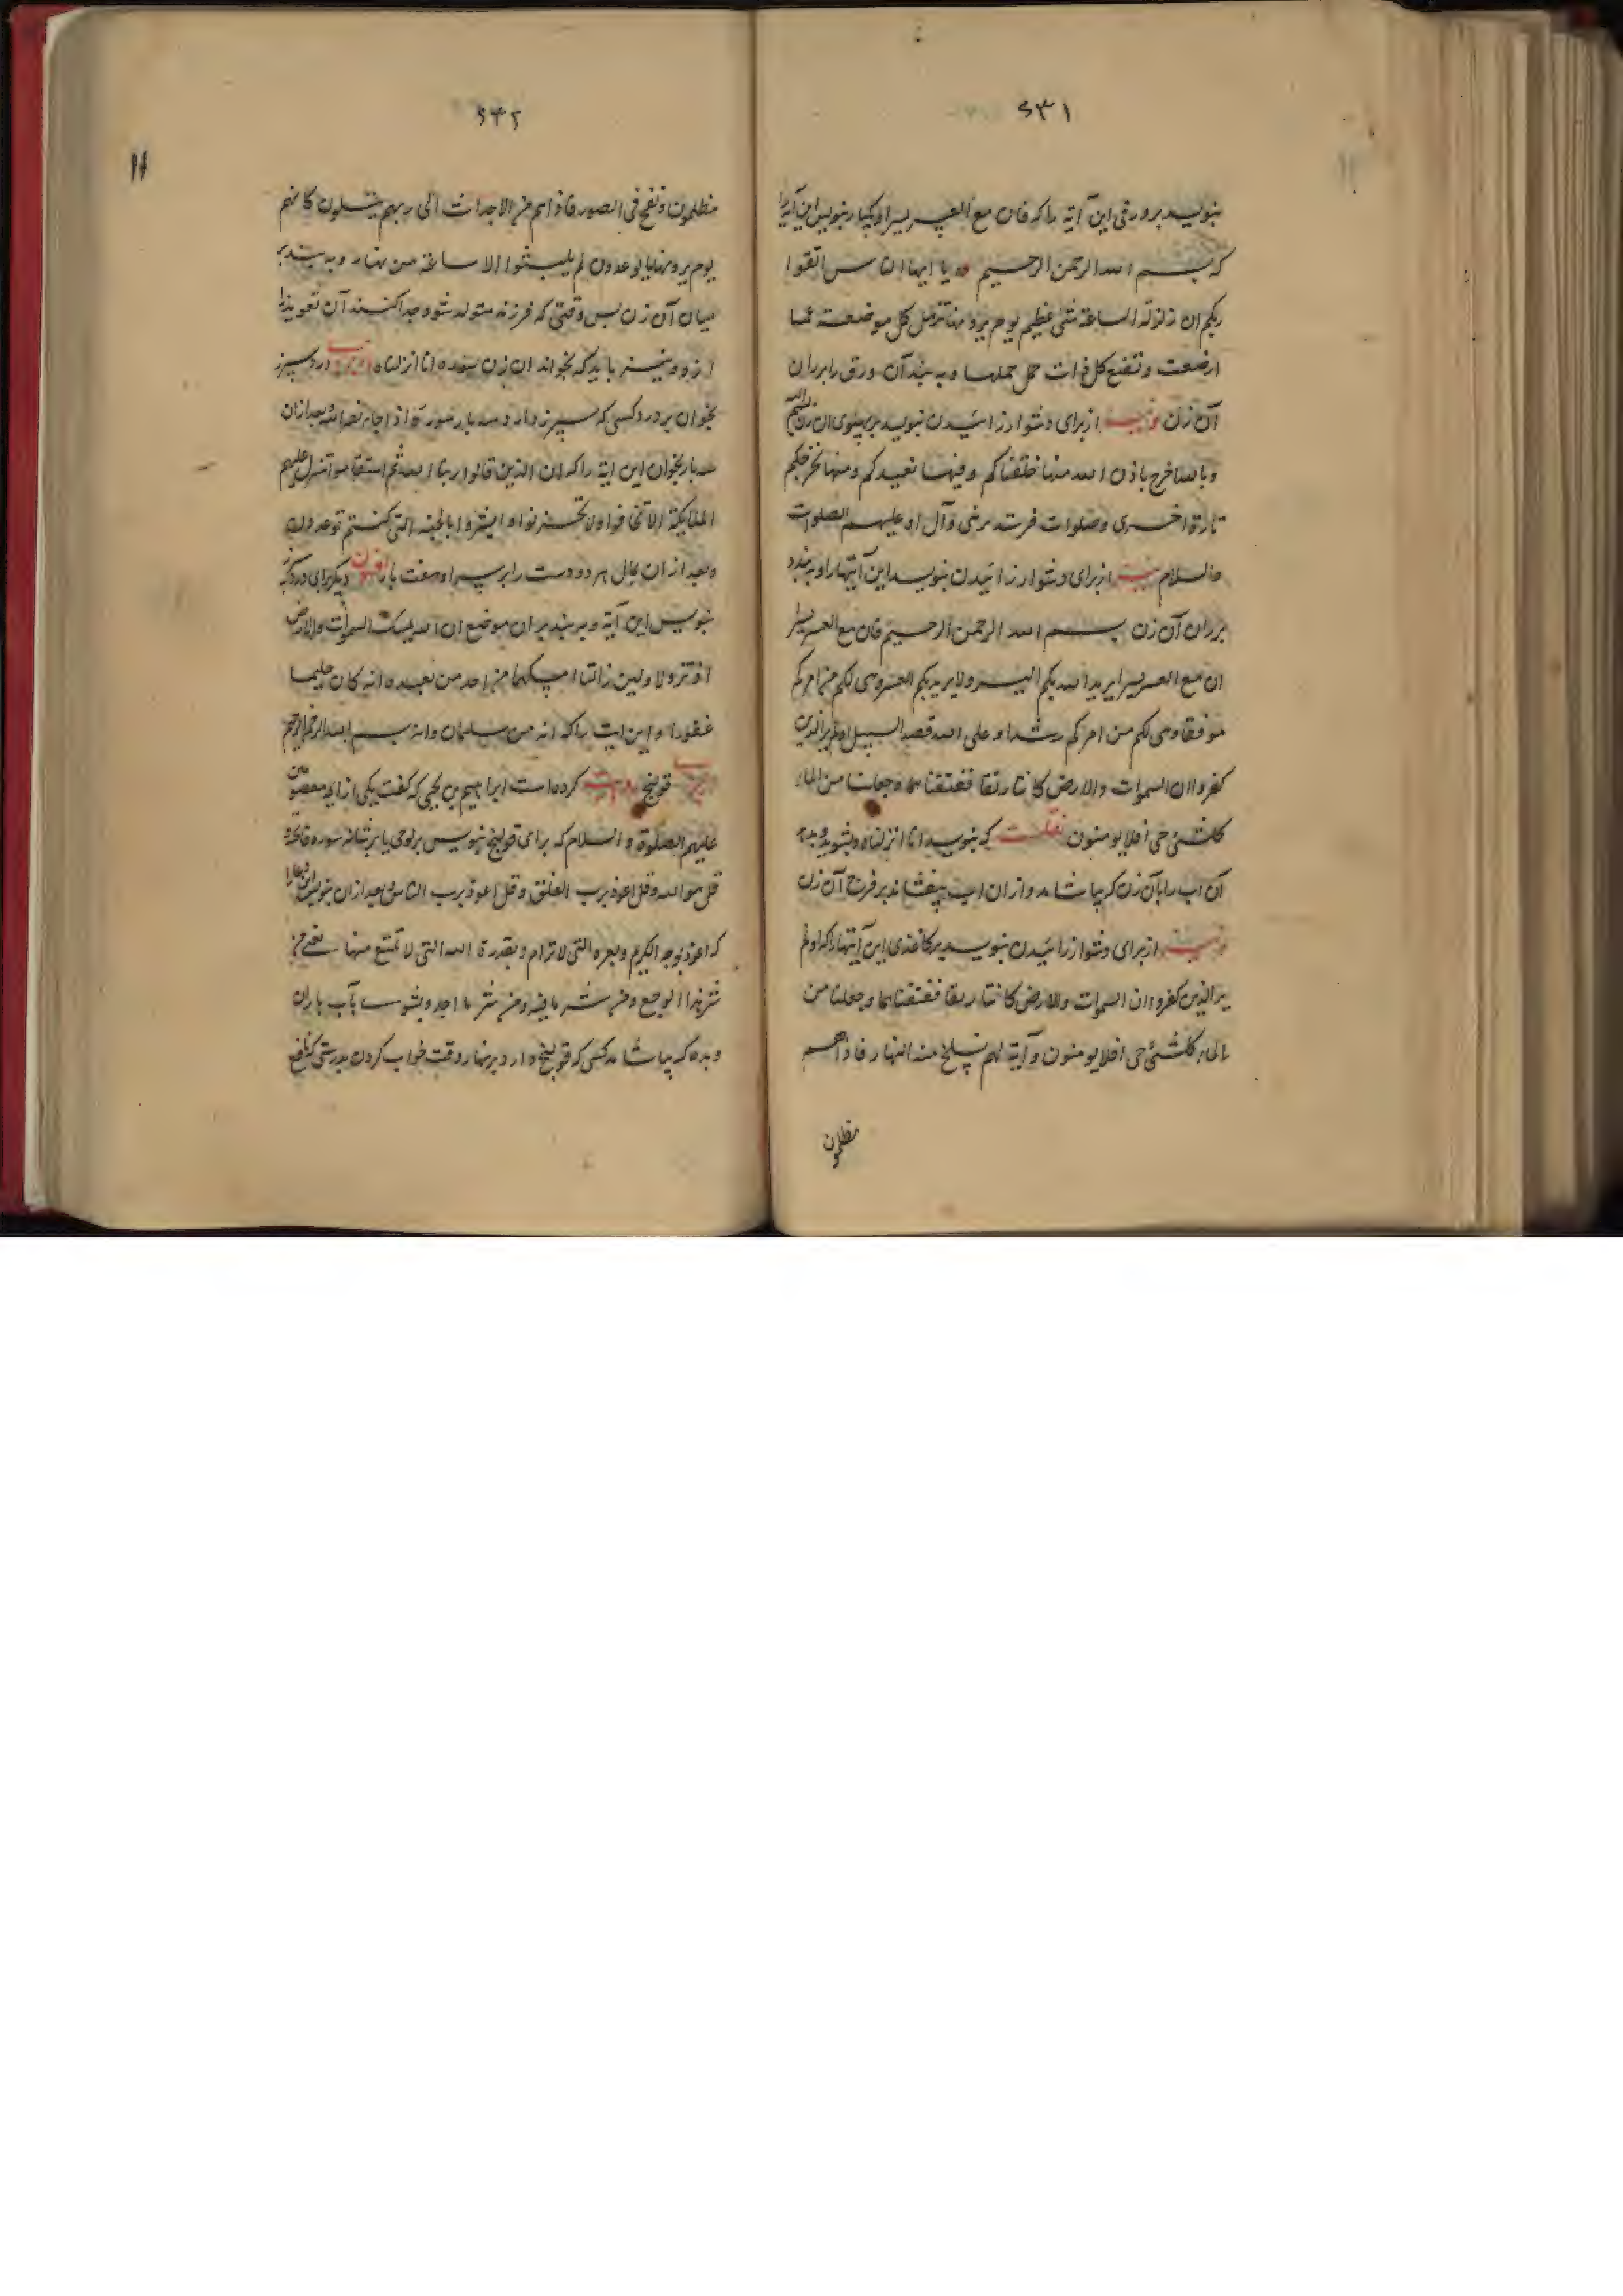 ۶۳۱
بنویسد بر ورقی این آیه را که فان مع العسر یسرا و یکبار بنویس این آیه را
که بسم الله الرحمن الرحیم یا ایها الناس اتقوا
ربکم ان زلزلة الساعة شئ عظیم یوم ترونها تذهل کل مرضعة عما
ارضعت و تضع کل ذات حمل حملها و به بندد آن ورق را بر ران
آن زن از برای دشوار زائیدن بنویسد بر پهلوی آن زن بسم الله
و بالله اخرج باذن الله منها خلقناکم و فیها نعیدکم و منها نخرجکم
تارة اخری و صلوات فرستد بر نبی و آل او علیهم الصلوات
والسلام از برای دشوار زائیدن بنویسد این آیتها را و به بندد
بر ران آن زن بسم الله الرحمن الرحیم فان مع العسر یسرا
ان مع العسر یسرا یرید الله بکم الیسر ولا یرید بکم العسر و هی لکم من امرکم
مرفقا و هی لکم من امرکم رشدا و علی الله قصد السبیل اولم یر الذین
کفروا ان السموات والارض کانتا رتقا ففتقناهما و جعلنا من الماء
کلشئ حی افلا یومنون که بنویسد انا انزلناه و بشوید و بدهد
آن اب را بآن زن که بیاشامد و از ان اب بیفشاند بر فرج آن زن
از برای دشوار زائیدن بنویسد بر کاغذی این آیتها را که اولم
یر الذین کفروا ان السموات والارض کانتا رتقا ففتقناهما و جعلنا من
الماء کلشئ حی افلا یومنون و آیة لهم نسلخ منه النهار فاذا هم
مظلمون
۶۳۲
مظلمون و نفخ فی الصور فاذا هم من الاجداث الی ربهم ینسلون کانهم
یوم یرونها یوعدون لم یلبثوا الا ساعة من نهار و به بندد بر
میان آن زن پس وقتی که فرزند متولد شود جدا کنند آن تعویذ را
از و و نیز باید که بخواند ان زن سوره انا انزلناه درد سپرز
بخوان بر درد کسی که سپرز دارد سه بار سوره اذا جاء نصر الله بعد ازان
سه بار بخوان این ایة را که ان الذین قالوا ربنا الله ثم استقاموا تتنزل علیهم
الملائکة الا تخافوا ولا تحزنوا و ابشروا بالجنة التی کنتم توعدون
و بعد از ان بمال هر دو دست را بر سپرز او هفت بار دیگر برای درد
بنویس این آیة و به بند بر ان موضع ان الله یمسک السموات والارض
ان تزولا ولین زالتا ان امسکهما من احد من بعده انه کان حلیما
غفورا و این ایت را که انه من سلیمان وانه بسم الله الرحمن الرحیم
قولنج روایت کرده است ابراهیم بن یحیی که گفت یکی از ایمه معصومین
علیهم الصلوة و السلام که برای قولنج بنویس بر لوحی یا بر شانه سوره فاتحه و
قل هو الله و قل اعوذ برب الفلق و قل اعوذ برب الناس و بعد ازان بنویس این دعا را
که اعوذ بوجه الکریم و بعزته التی لا ترام و بقدرة الله التی لا تمتنع منها شئ من
شر هذا الوجع و من شر ما فیه و من شر ما اجد و بشوی بآب باران
و بده که بیاشامد کسی که قولنج دارد بر نهار وقت خواب کردن بدرستی که نافع